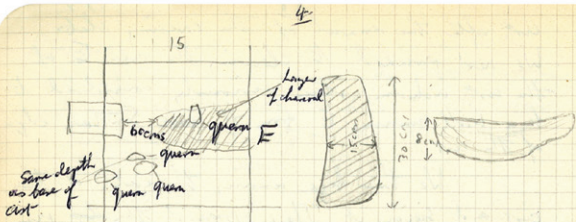 4
15
Layer
of charcoal
60cms
quern
E
quern
Same depth
as base of
cist
quern quern
15cm
30cm
8
cm